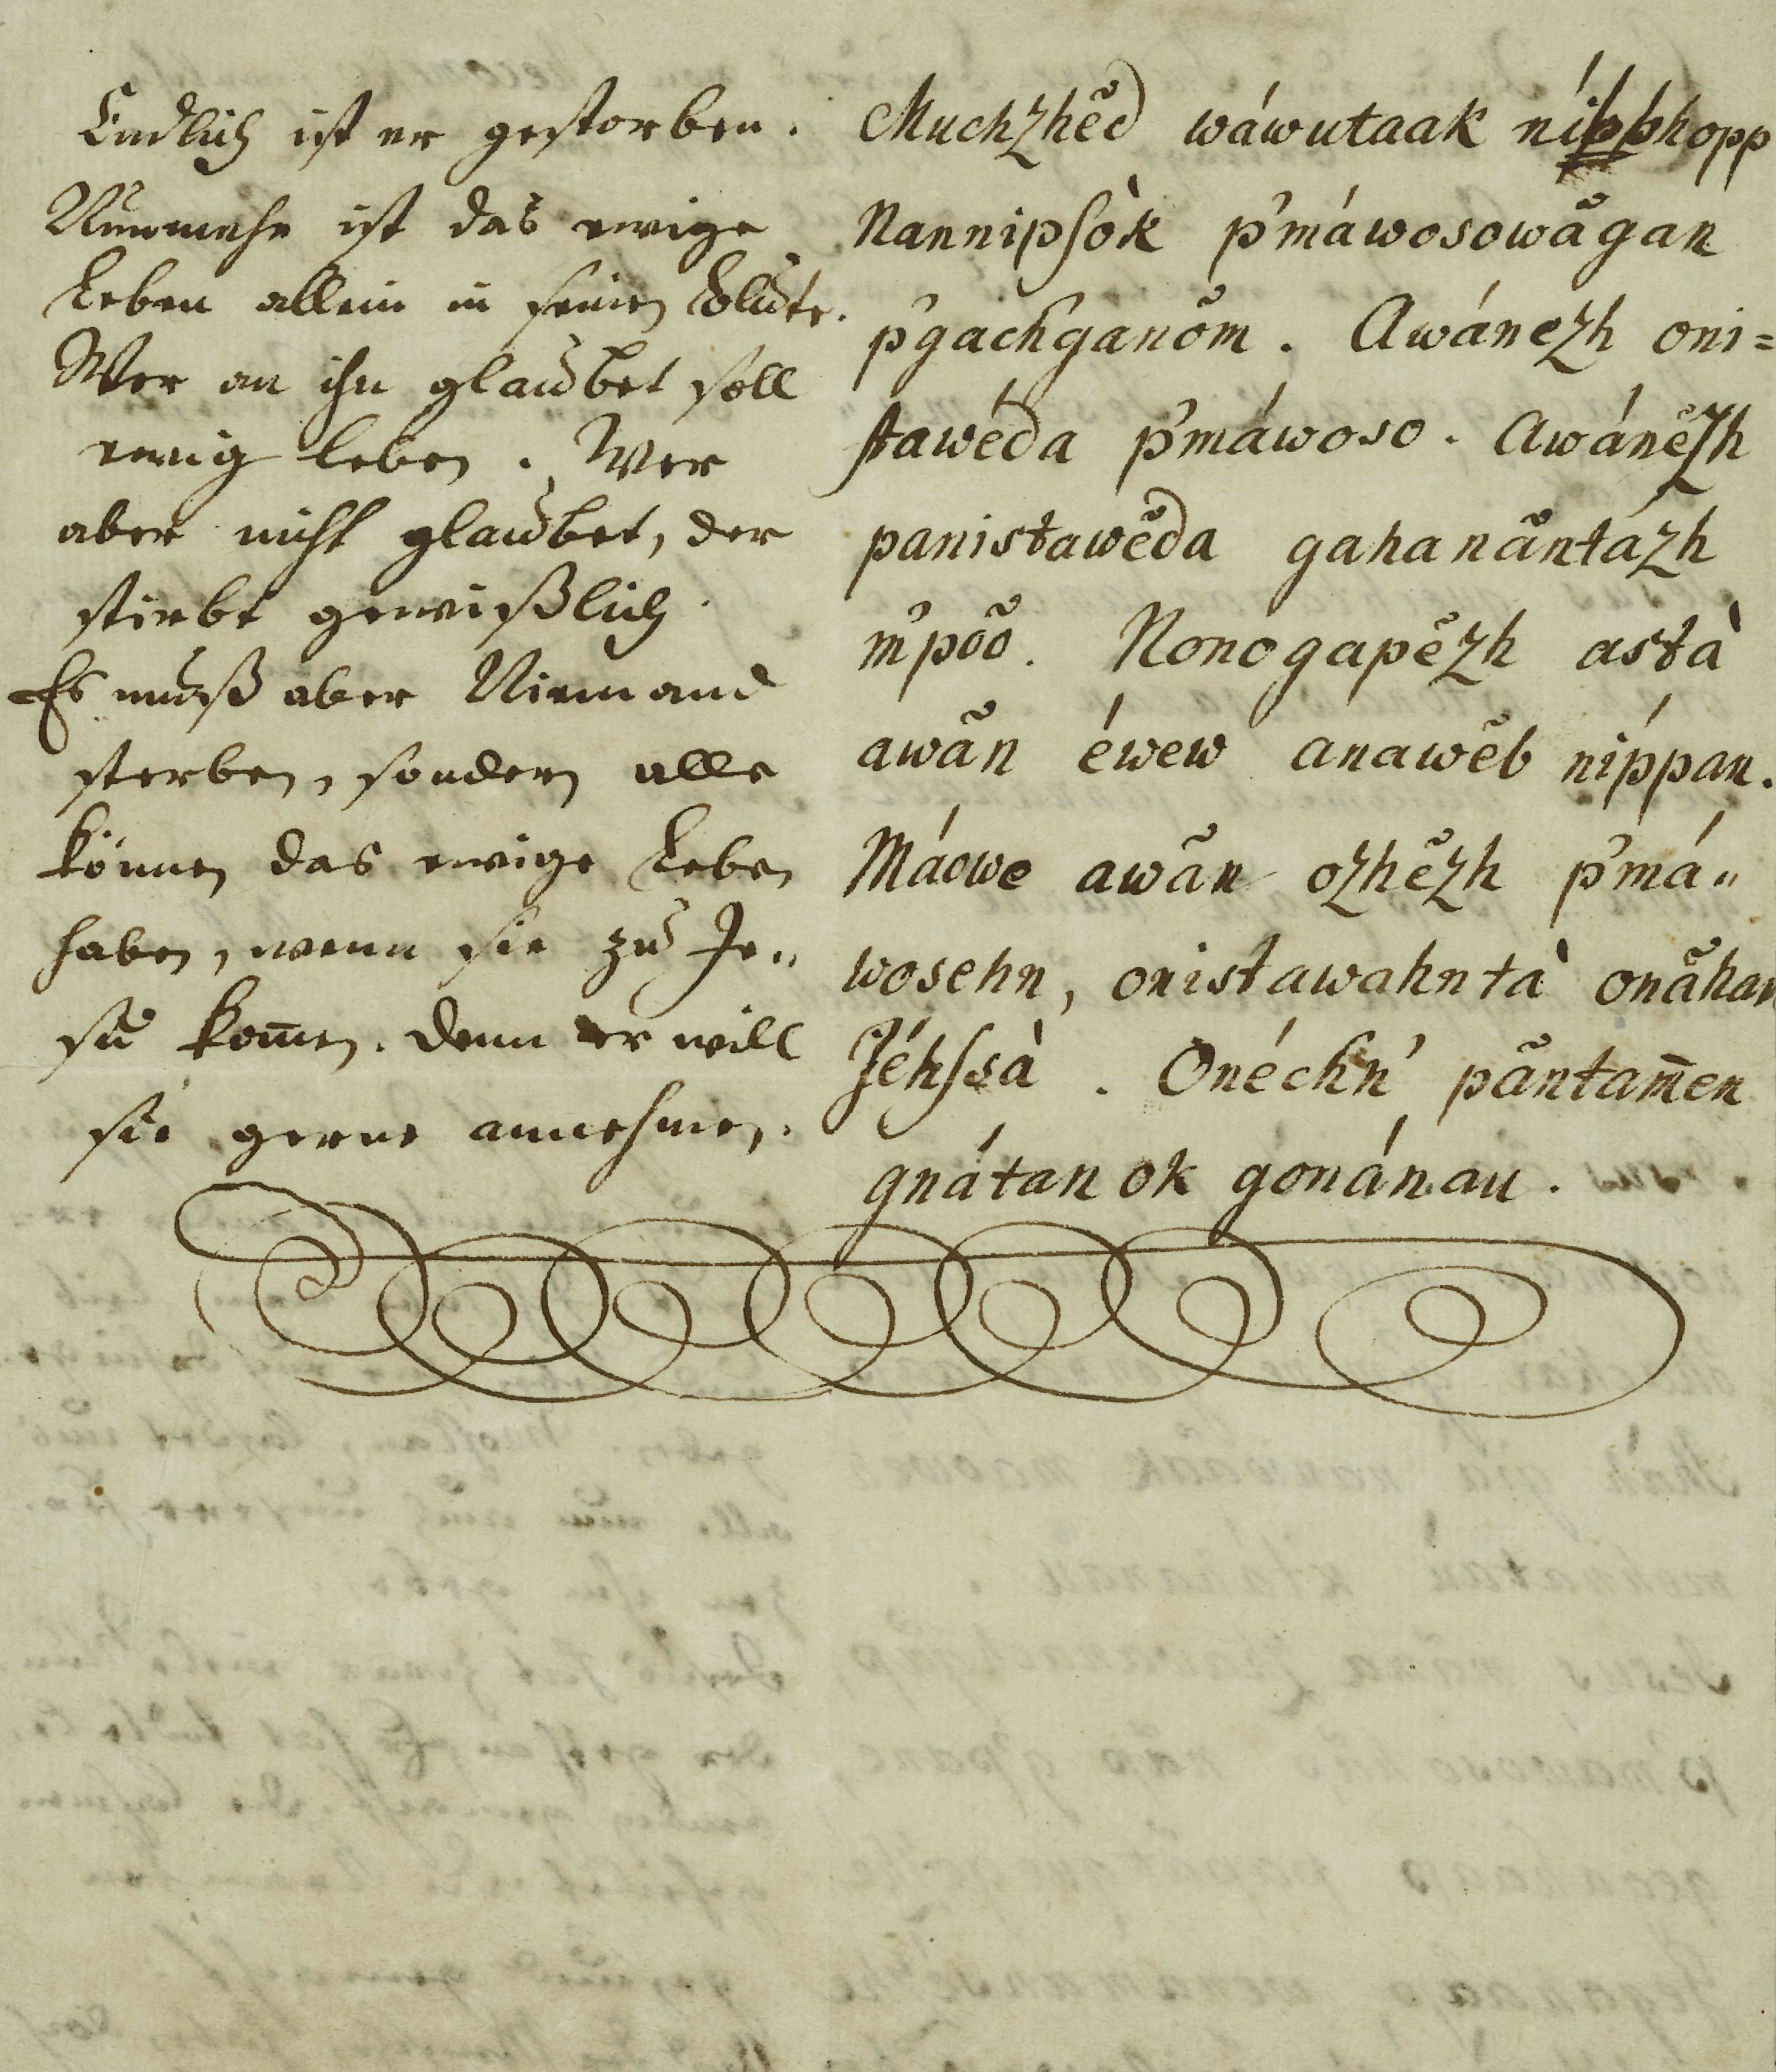 Endlich ist er gestorben.
Nunmehr ist das ewige
Leben allein in seinen Blute.
Wer an ihn glaubet soll
ewig leben. Wer
aber nicht glaubet, der
stirbt gewißlich.
Es muß aber Niemand
sterben, sondern alle
können das ewige Leben
haben, wenn sie zu Je„
su kom̅en. denn er will
sie gerne annehmen.
Muchzhẽd wáwutaak nípphopp
Nannipsòk p'máwosowãgan
p'gach'ganõm. Awánezh oni=
stawéda p'máwoso. Awánẽzh
panistawẽda gahanãntázh
m'põo. Nonogapẽzh astà
awãn éwew anawẽb níppan.
Máowe awãn ozhẽzh p'má„
wosehn, onistawahntà onãhan
Jéhssà. Onéch'n' pãntam̅en
gnátan ok gonánau.